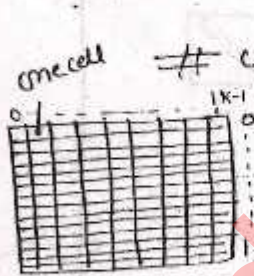 one cell # C
0 1K-1 0